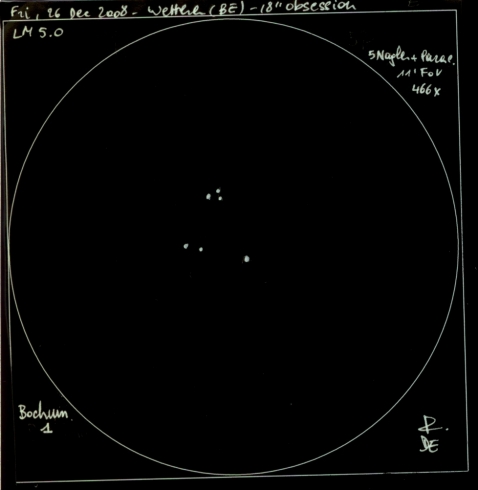 Fri, 26 Dec 2008 - Wetthen (BE) - 18" obsession
LM 5.0
5 Nagler + Parac.
11' FoV
466x
Bochum
1
R.
DE